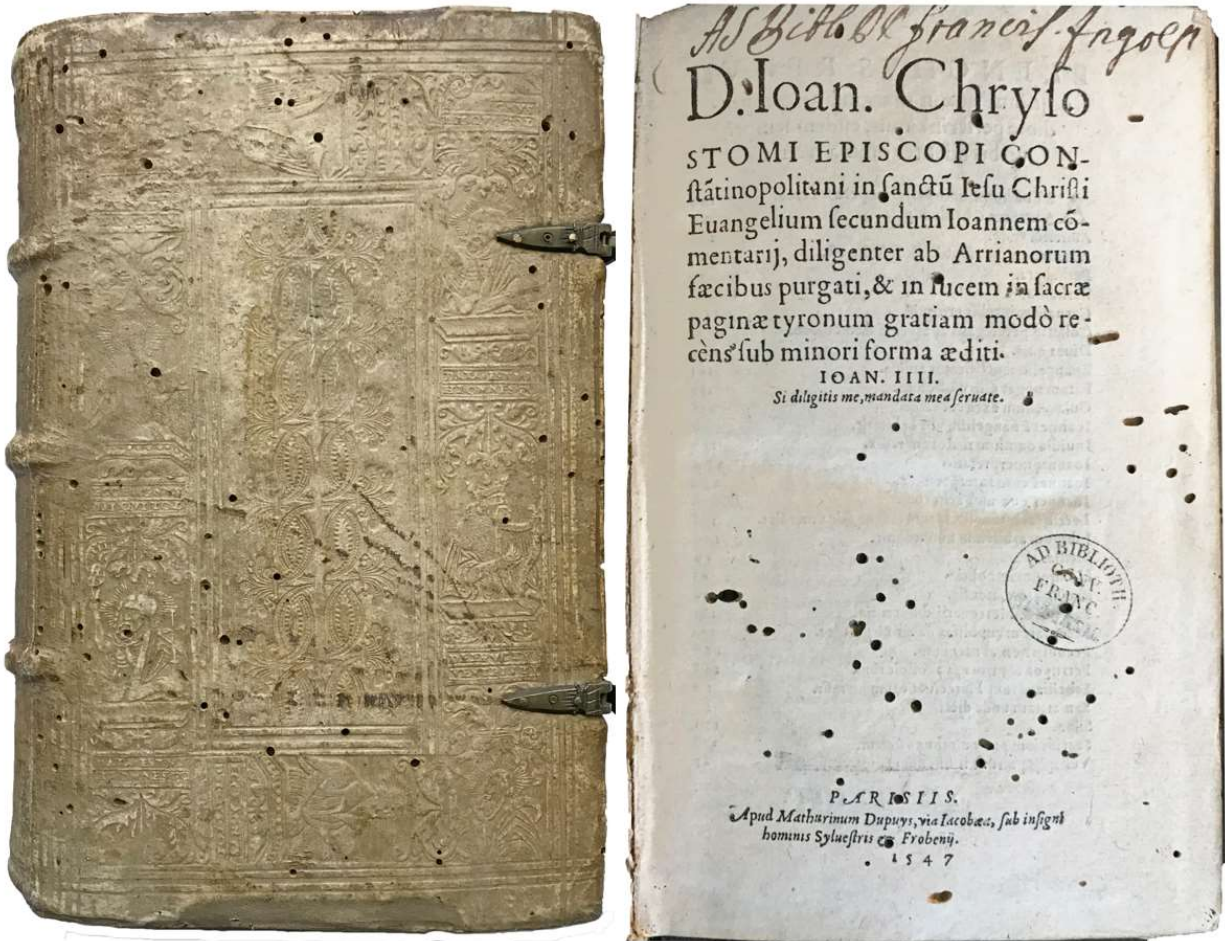 Ad Bibl. Francis. Ingolst
D. Ioan. Chryſo
STOMI EPISCOPI CON-
ſtãtinopolitani in ſanctũ Ieſu Chriſti
Euangelium ſecundum Ioannem cõ-
mentarij, diligenter ab Arrianorum
fæcibus purgati, & in lucem in ſacræ
paginæ tyronum gratiam modò re-
cèns ſub minori forma æditi.
IOAN. IIII.
Si diligitis me, mandata mea ſeruate.
AD BIBLIOTH.
CONV.
FRANC.
PARISIIS.
Apud Mathurinum Dupuys, via Iacobæa, ſub inſigni
hominis Sylueſtris & Frobenij.
1547